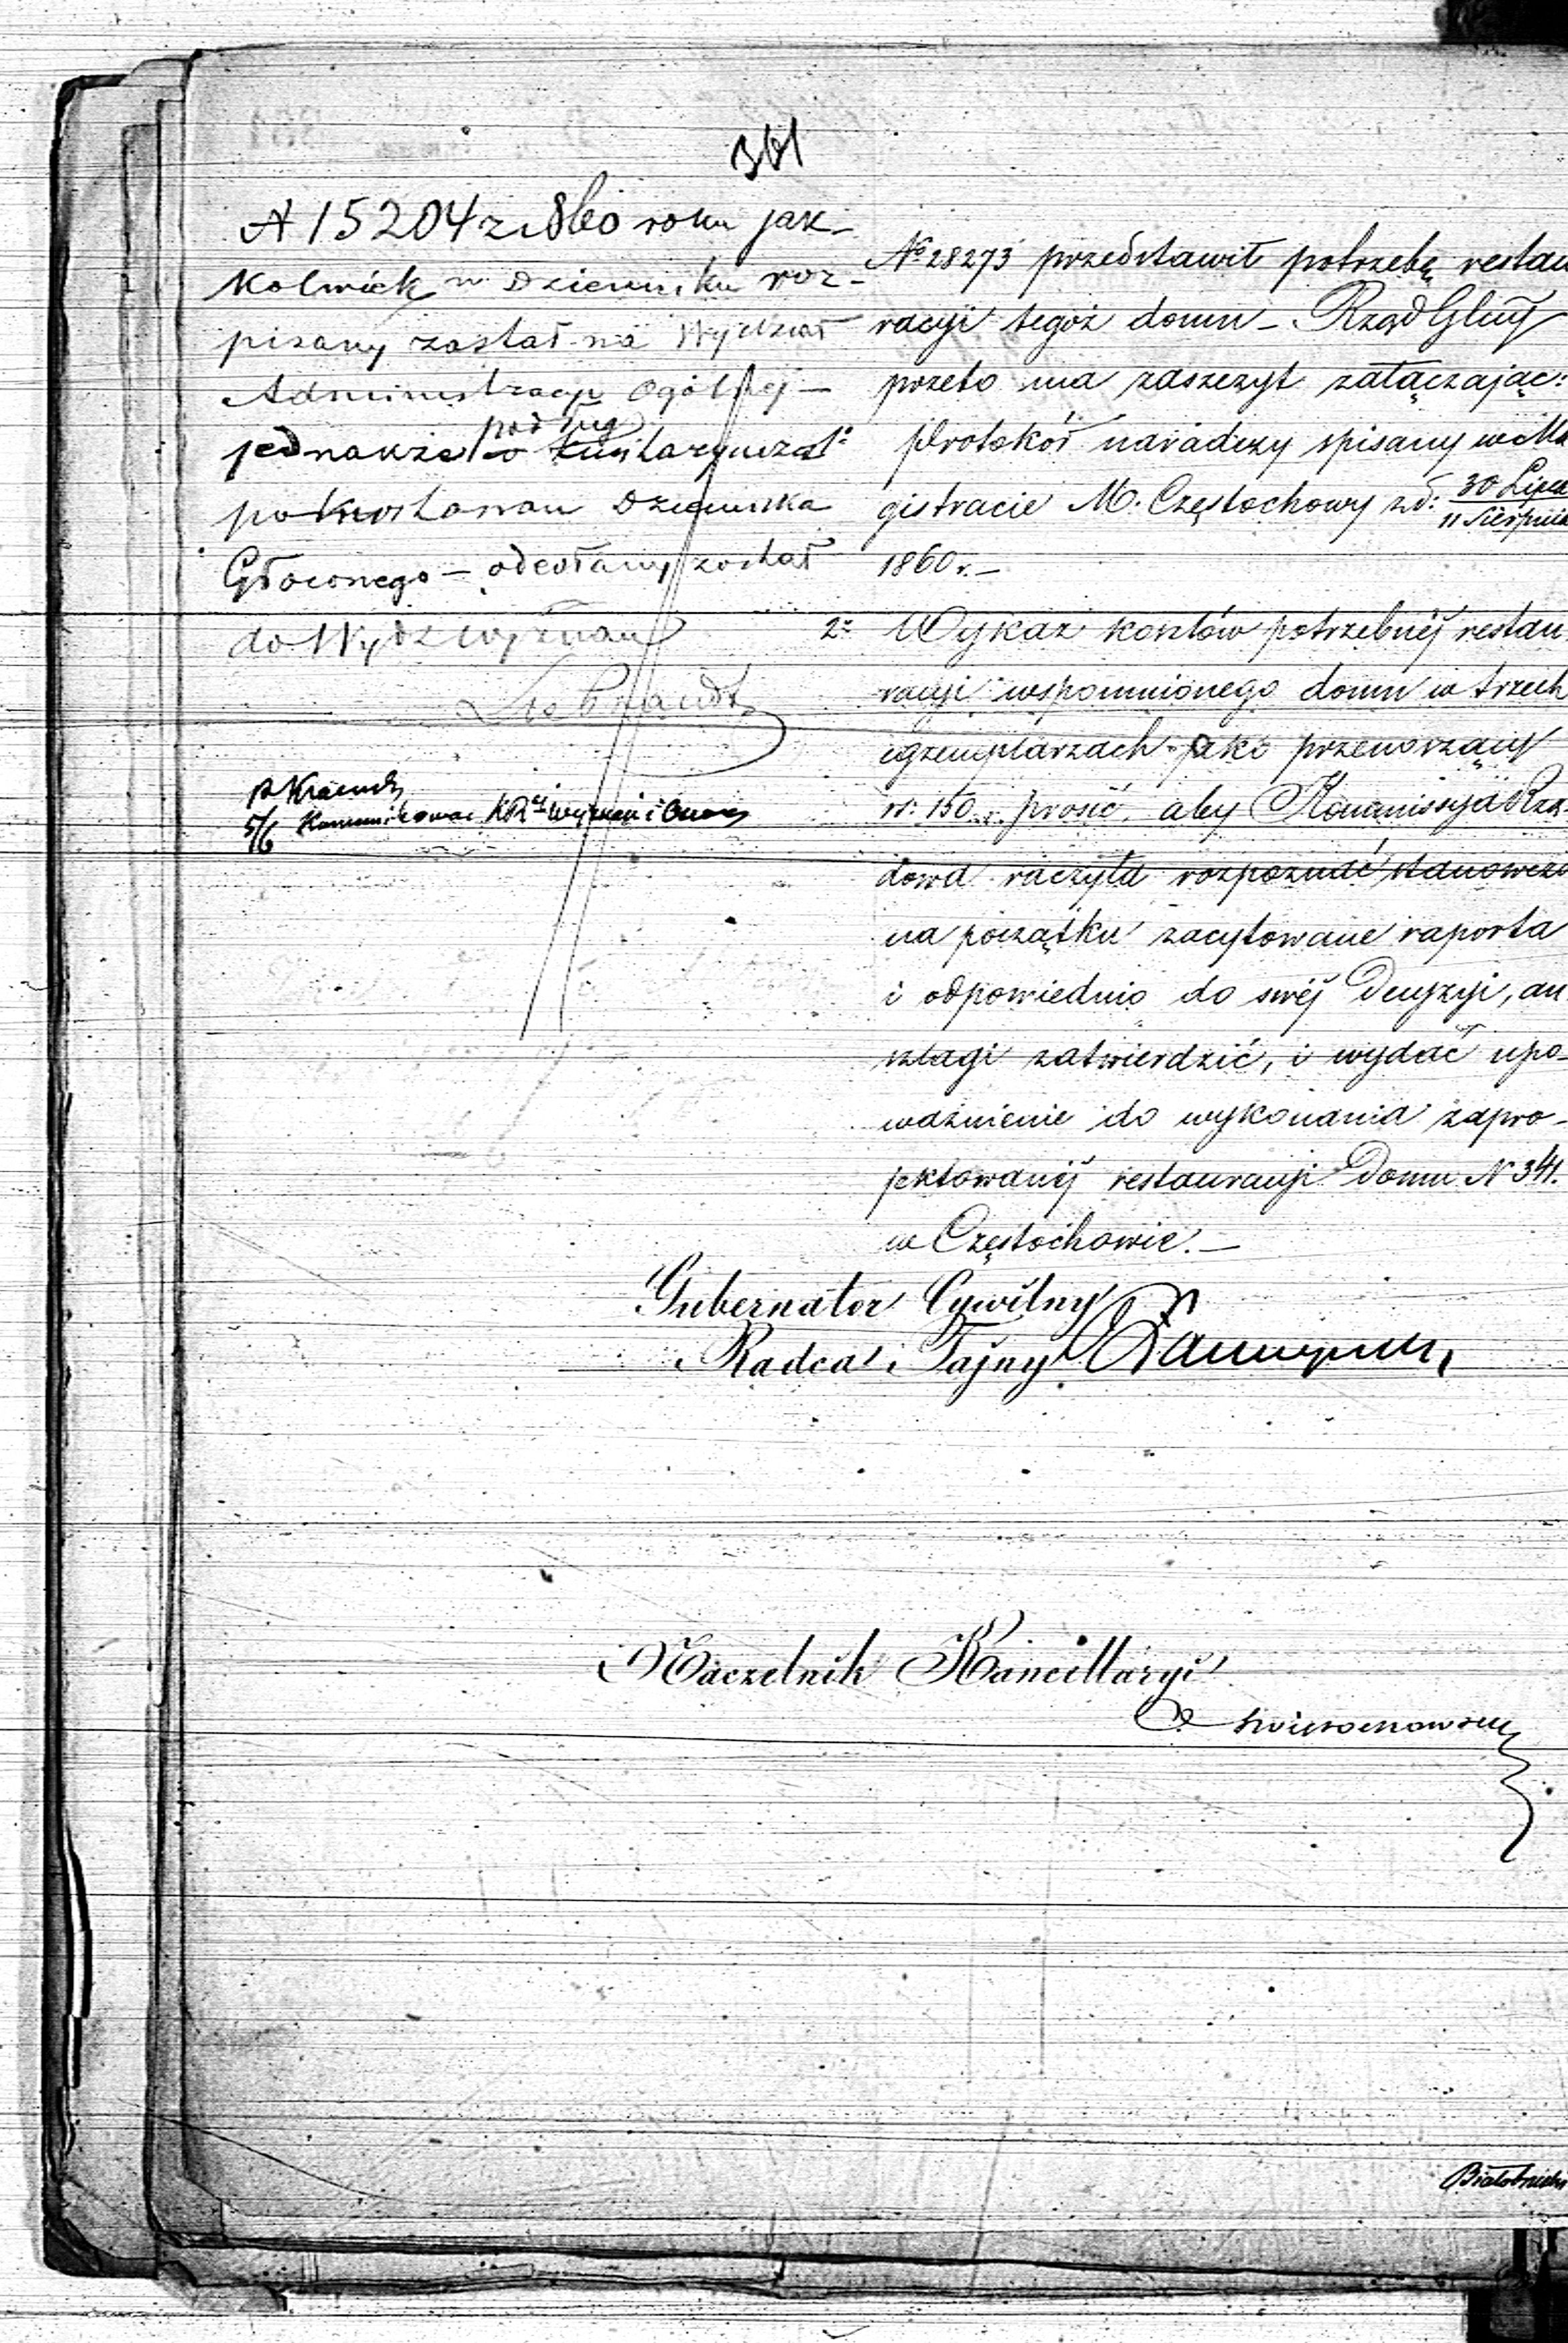 361
N 15204 z 1860 roku jak-
kolwiek w Dzienniku roz-
pisany został na Wydział
Administracyi Ogólnej -
jednakże podług
po Dziennika
Głównego - odesłany został
do Wydz Wyznań
5/6 Kommunikować K R Wyznań i
No 28273 przedstawił potrzebę restau
racyi tegoż domu - Rząd Glny
przeto ma zaszczyt załączając:
1o Protokół naradczy spisany w Ma
gistracie M. Częstochowy z d: 30 Lipca / 11 Sierpnia
1860 r. -
2o Wykaz kosztów potrzebnéj restau
racyi wspomnionego domu w trzech
egzemplarzach jako przenoszący
rs: 150. prosić, aby Kommissyja Rzą-
dowa raczyła rozpoznać stanowczo
na początku zacytowane raporta
i odpowiednio do swéj Decyzyi, an
szlagi zatwierdzić, i wydać upo-
ważnienie do wykonania zapro-
jektowanéj restauracyi Domu N 341.
w Częstochowie. -
Gubernator Cywilny
Radca Tajny
Naczelnik Kancellaryi